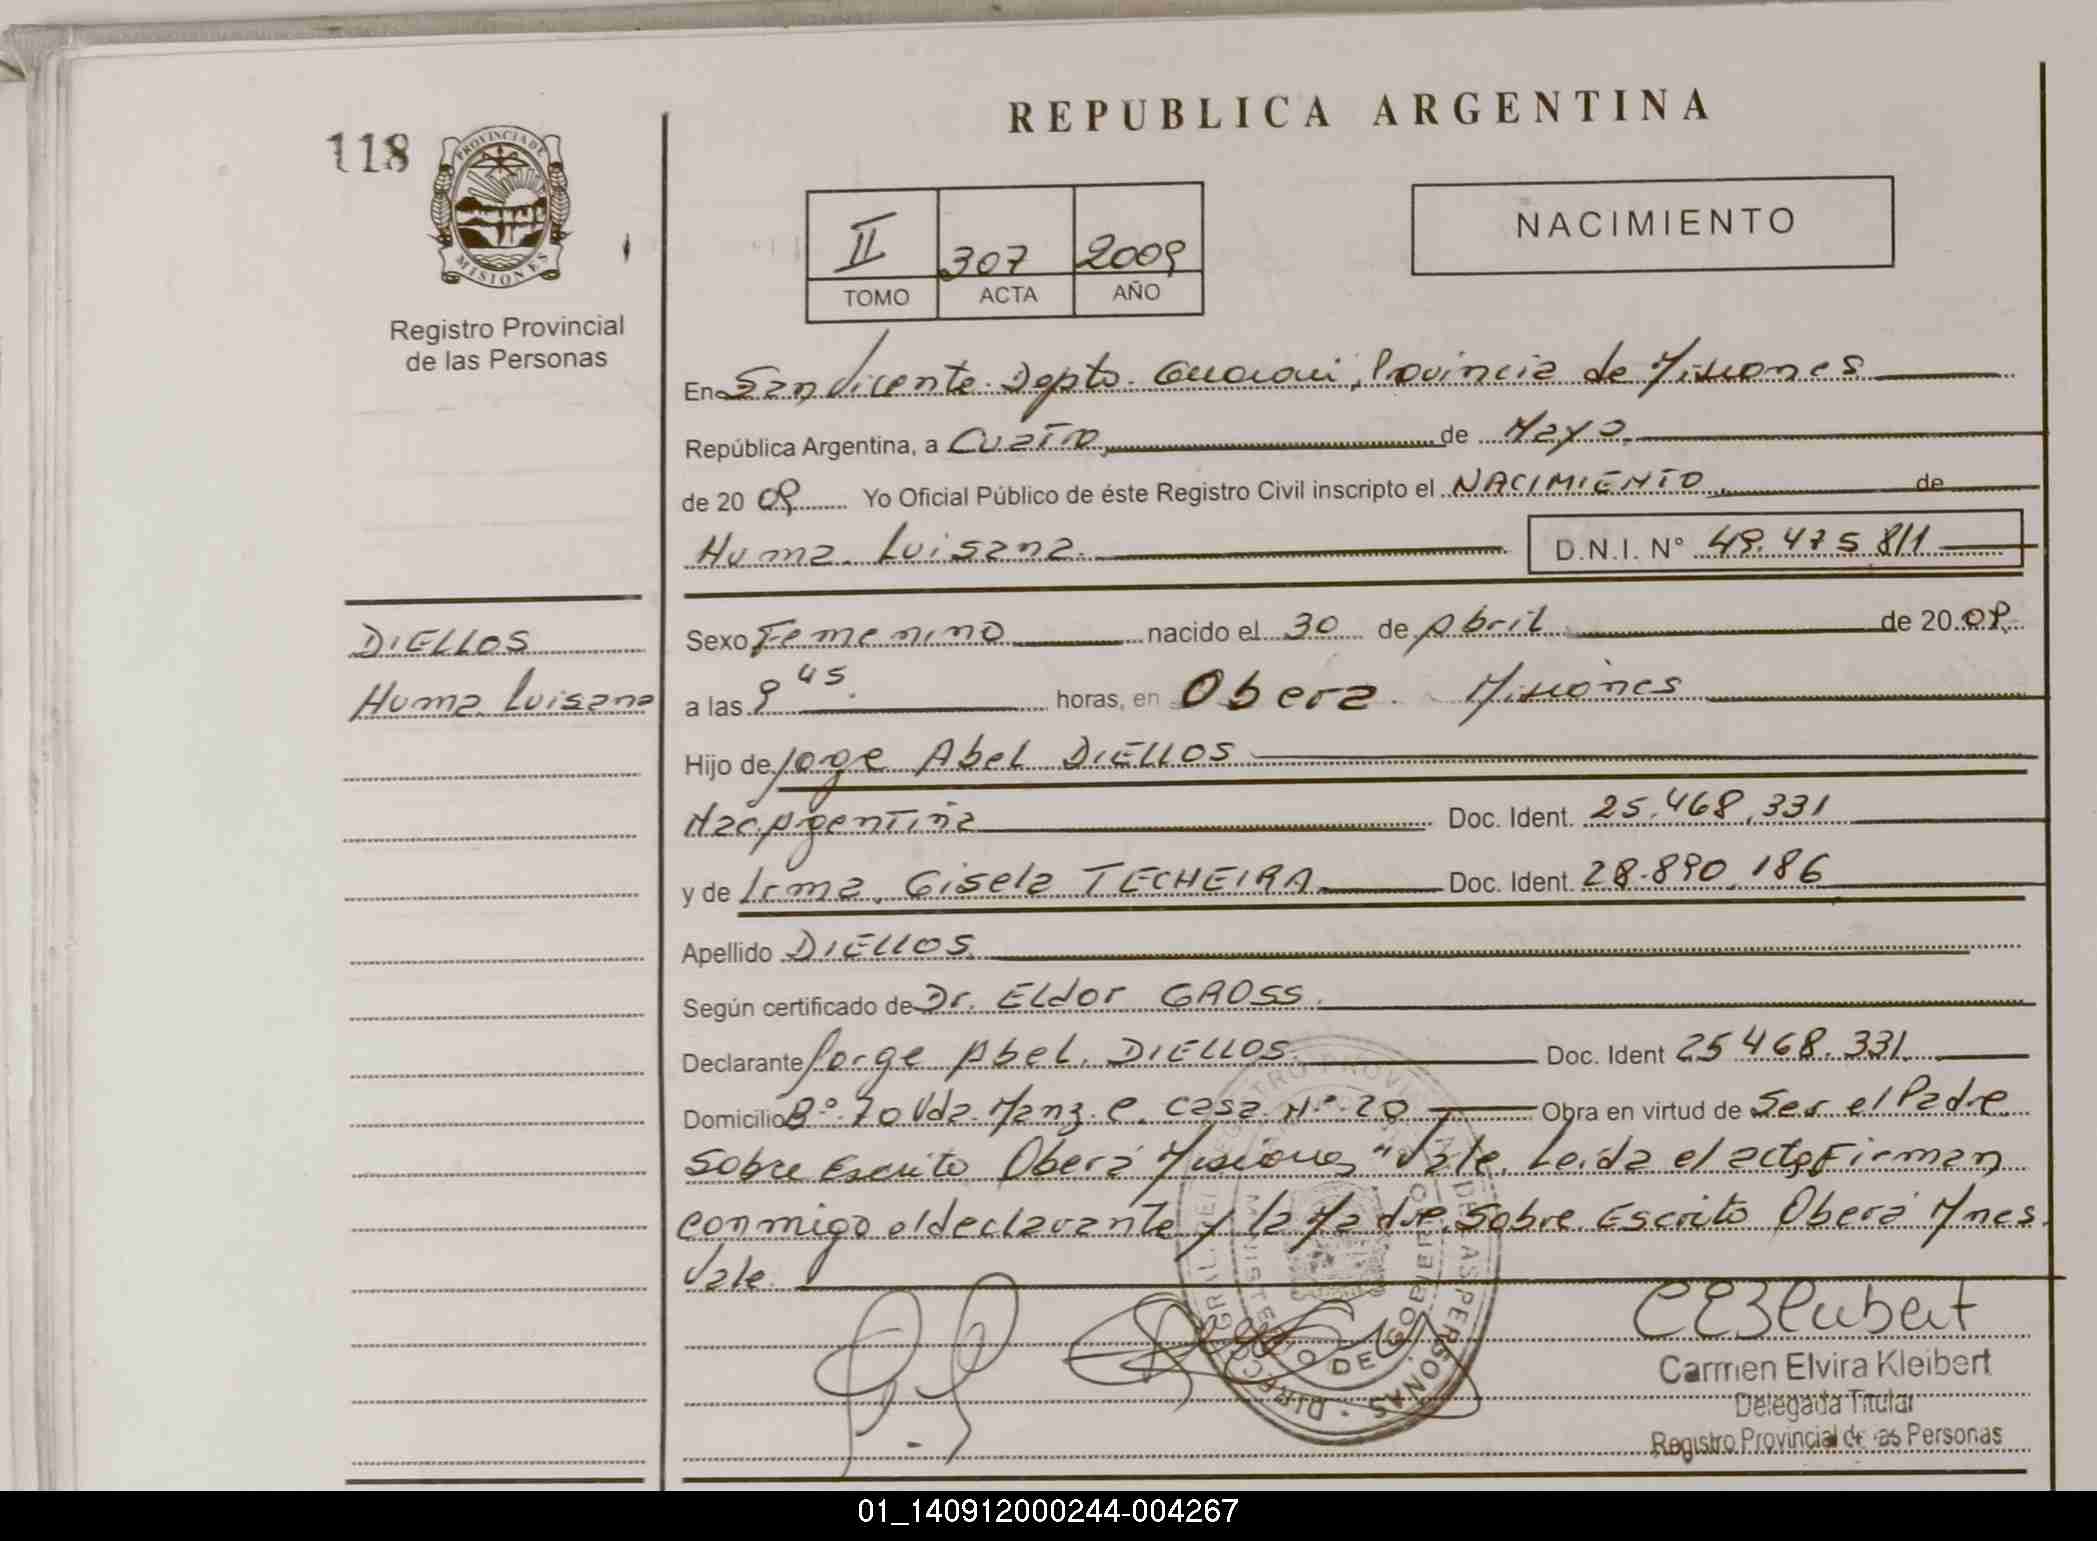 REPUBLICA ARGENTINA
118
PROVINCIA DE
MISIONES
Registro Provincial
de las Personas
II 307 2009
TOMO ACTA AÑO
NACIMIENTO
En San Vicente Depto. Guarani, Provincia de Misiones
República Argentina, a Cuatro de Mayo
de 20 09 Yo Oficial Público de éste Registro Civil inscripto el NACIMIENTO de
Huma Luisana D.N.I. N° 49.475 811
DIELLOS
Huma Luisana
Sexo Femenino nacido el 30 de Abril de 20 09
a las 9 45 horas, en Obera. Misiones
Hijo de Jorge Abel DIELLOS
Nac. Argentina Doc. Ident. 25.468.331
y de Irma Gisela TECHEIRA Doc. Ident. 28.890.186
Apellido DIELLOS
Según certificado de Dr. Eldor GROSS
Declarante Jorge Abel DIELLOS Doc. Ident 25 468.331
Domicilio B° 70 Vda. Manz. e. casa N° 20 Obra en virtud de Ser el Padre
Sobre Escrito Oberá Misiones "Vale. Leida el acta Firman
conmigo el declarante y la Madre. Sobre Escrito Oberá Mnes.
Vale
CEKleibert
Carmen Elvira Kleibert
Delegada Titular
Registro Provincial de las Personas
01_140912000244-004267